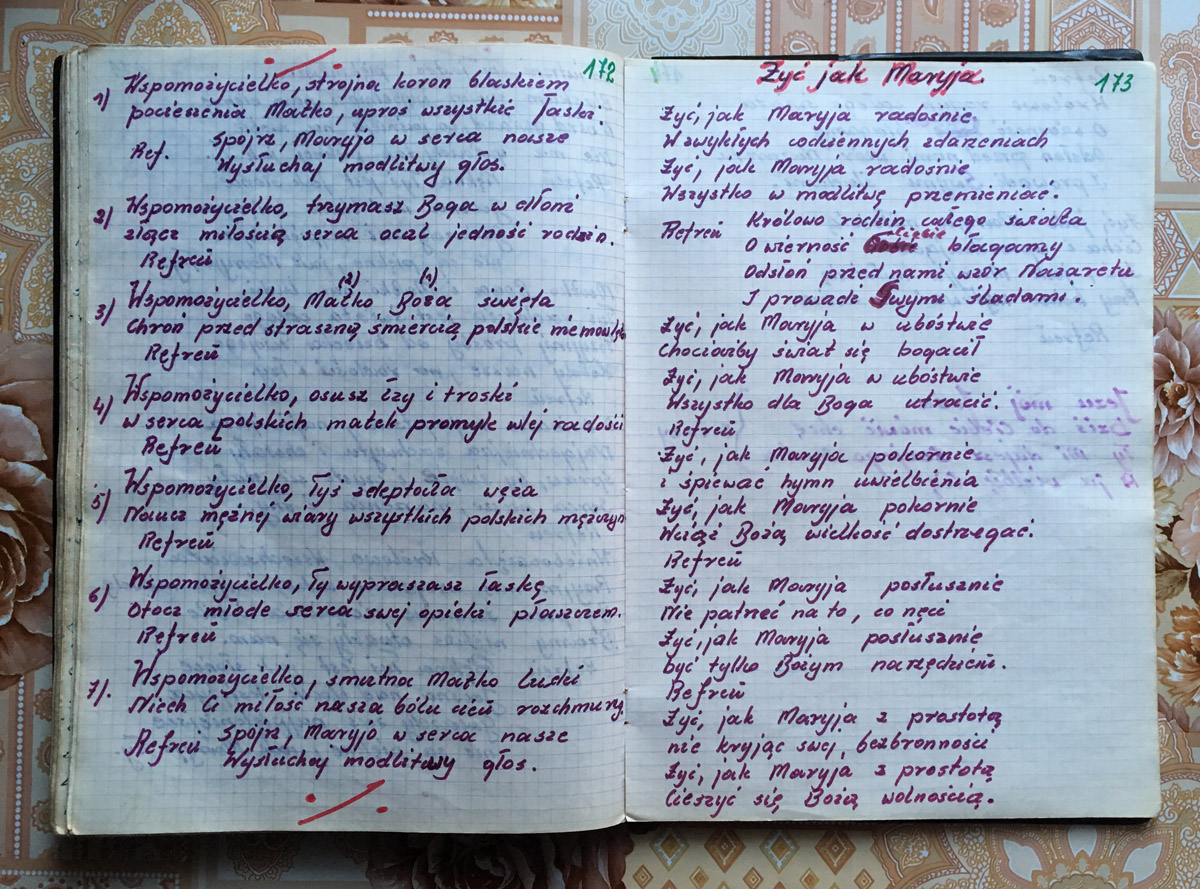 172
1) Wspomożycielko, strojna koron blaskiem
pocieszenia Matko, uproś wszystkie łaski.
Ref. Spójrz, Maryjo w serca nasze
Wysłuchaj modlitwy głos.
2) Wspomożycielko, trzymasz Boga w dłoni
złącz miłością serca ocal jedność rodzin.
Refreń
(2) (1)
3) Wspomożycielko, Matko Boża święta
Chroń przed straszną śmiercią polskie niemowlęta
Refreń
4) Wspomożycielko, osusz łzy i troski
w serca polskich matek promyk wlej radości
Refreń
5) Wspomożycielko, Tyś zdeptała węża
Naucz mężnej wiary wszystkich polskich mężczyzn
Refreń
6) Wspomożycielko, Ty wypraszasz łaskę
Otocz młode serca swej opieki płaszczem.
Refreń
7). Wspomożycielko, smutna Matko Ludzi
Niech Ci miłość nasza bólu cień rozchmurzy.
Refreń Spójrz, Maryjo w serca nasze
Wysłuchaj modlitwy głos.
Żyć jak Maryja 173
Żyć, jak Maryja radośnie
W zwykłych codziennych zdarzeniach
Żyć, jak Maryja radośnie
Wszystko w modlitwę przemieniać.
Refreń Królowo rodzin całego świata
O wierność Ciebie błagamy
Odsłoń przed nami wzór Nazaretu
I prowadź Swymi śladami.
Żyć, jak Maryja w ubóstwie
Chociażby świat się bogacił
Żyć, jak Maryja w ubóstwie
Wszystko dla Boga utracić.
Refreń
Żyć, jak Maryja pokornie
i śpiewać hymn uwielbienia
Żyć, jak Maryja pokornie
Wciąż Bożą wielkość dostrzegać.
Refreń
Żyć, jak Maryja posłusznie
Nie patrzeć na to, co nęci
Żyć, jak Maryja posłusznie
być tylko Bożym narzędziem.
Refreń
Żyć, jak Maryja z prostotą
nie kryjąc swej bezbronności
Żyć, jak Maryja z prostotą
Cieszyć się Bożą wolnością.